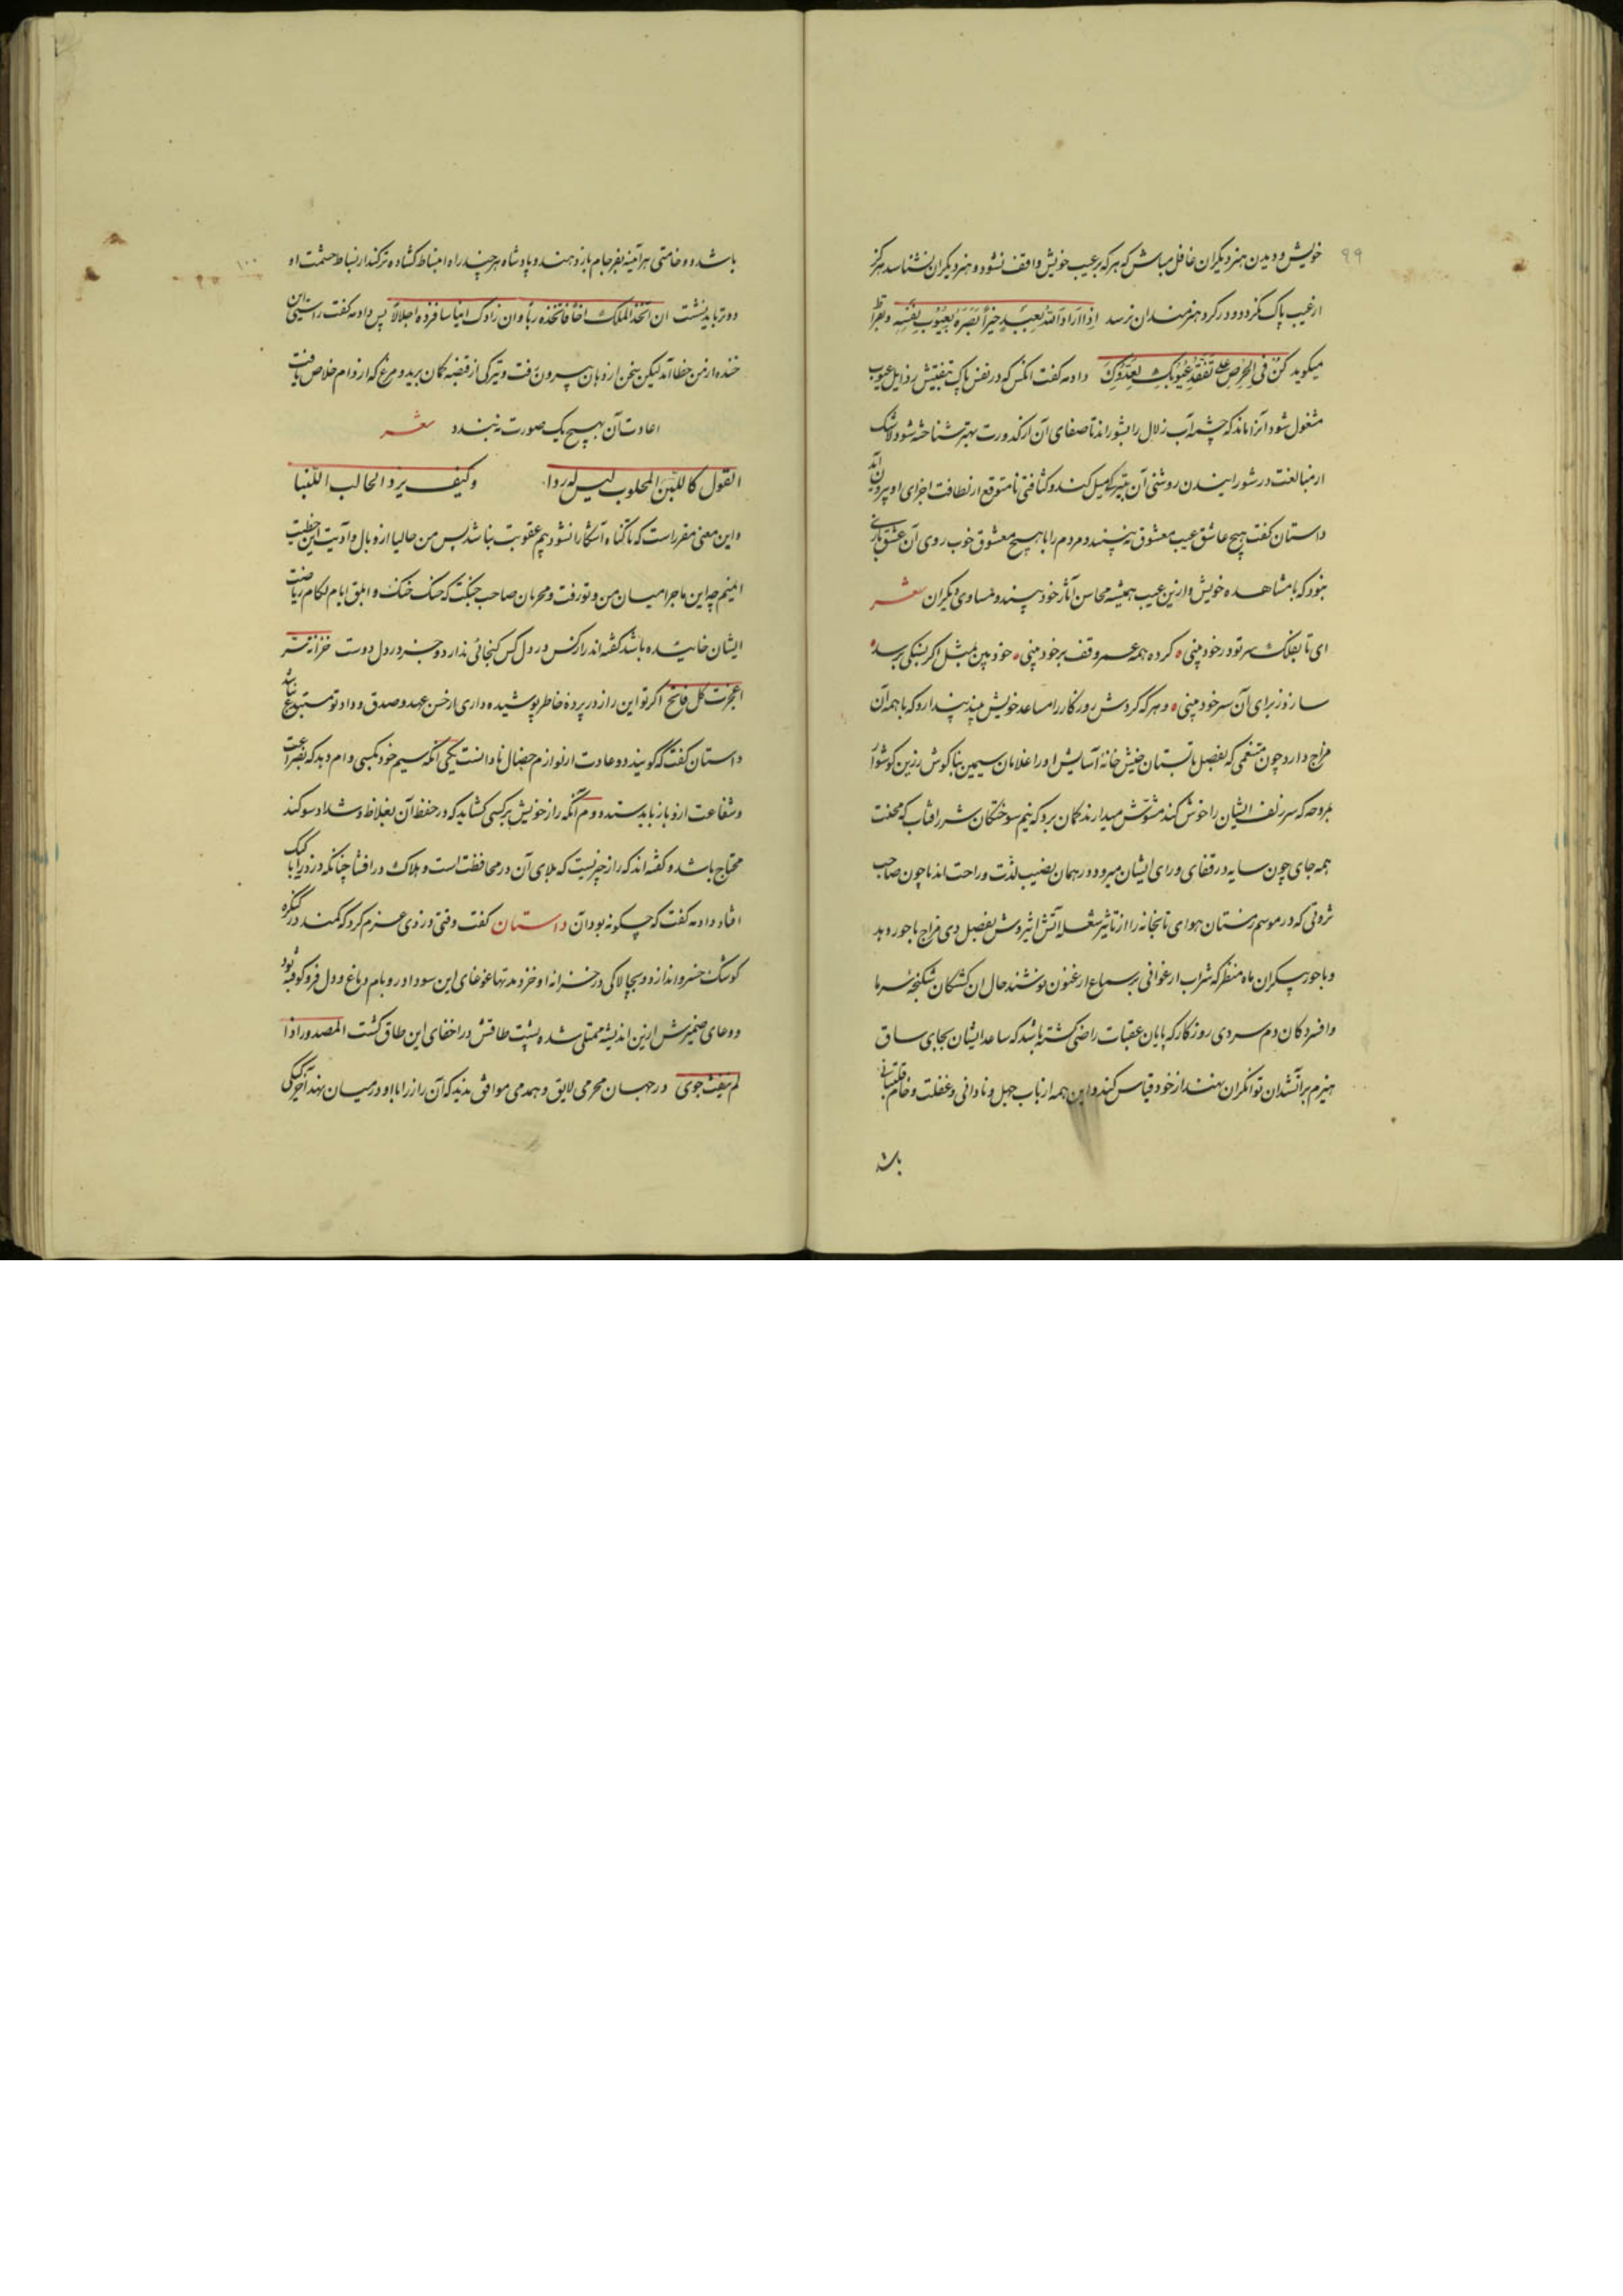 ۹۹
خویش و دیدن هنر دیکران غافل مباش که هرکه بر عیب خویش واقف نشود و هنر دیکران نشناسد هرکز
از عیب پاک نکردد و در کرد هنرمندان نرسد اِذا اَرادَ اللهُ بِعَبدٍ خیراً بَصَّرَهُ بِعُیُوبِ نَفسِهِ و بقراط
میکوید کُن فی الحِرصِ علی تَفَقُّدِ عُیُوبِکَ کَعَدُوِّکَ دادمه کفت انکس که در نفس پاک بتفتیش رذایل عیوب
مشغول شود انرا ماند که چشمه آب زلال را بشوراند تا صفای آن از کدورت بهتر شناخته شود لاشک
از مبالغت در شورانیدن روشنی آن بتیرکی میل کند و کثافتی نامتوقع از لطافت اجزای او بیرون آید
داستان کفت هیچ عاشق عیب معشوق نه بیند و مردم را با هیچ معشوق خوب روی آن عشق بازی
نبود که با مشاهده خویش و ازین عیب همیشه محاسن آثار خود بیند و مساوی دیکران شعر
ای تا بفلک سر تو در خود بینی کرده همه عمر وقف بر خود بینی خود بین بمثل اکر بنیکی برسد
سازند ز برای آن سر خود بینی و هرکه کردش روزکار را مساعد خویش بیند پندارد که با همه آن
مزاج دارد چون متنعمی که بفصل تابستان خیش خانۀ آسایش او را غلامان سیمین بناکوش زرین کوشوار
بمروحه که سر زلف ایشان را خوش کند مشوّش میدارند کمان برد که نیم سوختکان شرر افتاب که محنت
همه جای چون سایه در قفای ورای ایشان میرود در همان نصیب لذت و راحت اند یا چون صاحب
ثروتی که در موسم زمستان هوای تابخانه را از تاثیر شعلۀ آتش اثیروش بفصل دی مزاج باحور دهد
و با حور پیکران ماه منظر که شراب ارغوانی بر سماع ارغنون نوشند حال ان کشتکان شکنجۀ سرما
و افسردکان دم سردی روزکار که پایان عقبات راضی کشته باشد که ساعد ایشان بجای ساق
هیزم بر آتشدان توانکران نهند از خود قیاس کند و این همه از باب جهل و نادانی و غفلت و خام قلتبانی
باشد
۱۰۰
باشد و وخامتی هرآینه بفرجام باز دهند و پادشاه هرچند راه انبساط کشاده‌تر کند از بساط حشمت او
دورتر باید نشست ان اتخذ الملک اخاً فاتخذه ربّاً و ان زادک ایناسا فزده اجلالاً پس دادمه کفت راستی این
خنده از من خطا آمد لیکن سخن از دهان بیرون رفت و تیر کی از قبضه کمان برید و مرغ که از دام خلاص یافت
اعادت آن بهیچ یک صورت نه بندد شعر
القول کاللبن المحلوب لیس له ردا وکیف یرد الحالب اللبنا
و این معنی مقرر است که تا کناه آشکارا نشود بیم عقوبت نباشد پس من حالیا از وبال و آدیت این خطیت
ایمنم چه این ماجرا میان من و تو رفت و مجربان صاحب حنکت که خنک و ابلق ایام لکام ریاضت
ایشان خائیده باشد کفته اند راز کس در دل کس کنجائی ندارد و جز در دل دوست خزانه سر
اعجزت کل فاتح اکر تو این راز در پردۀ خاطر پوشیده داری از حسن عهد و صدق وداد تو مستبدع نباشد
داستان کفت که کویند دو عادت از لوازم خصال نادانست یکی آنکه سیم خود بکسی وام دهد که بضراعت
و شفاعت ازو باز باید ستد دوم آنکه راز خویش بر کسی کشاید که در حفظ آن بغلاظ و شداد سوکند
محتاج باشد و کفته اند که راز چیزیست که بلای آن در محافظت است و هلاک در افشا چنانکه دزد را با کیک
افتاد دادمه کفت که چکونه بود آن داستان کفت وقتی دزدی عزم کرد که کمند در کنکره
کوشک خسرو اندازد و بچالاکی در خزانه او خزد مدتها غوغای این سودا در و بام دماغ و دل فرو کوفته بود
و وعای ضمیرش ازین اندیشه ممتلی شده پشت طاقتش در اخفای این طاق کشت المصدور اذا
لم ینفث جوی در جهان محرمی لایق و همدمی موافق ندید که آن راز را با او در میان نهد آخر کیکی